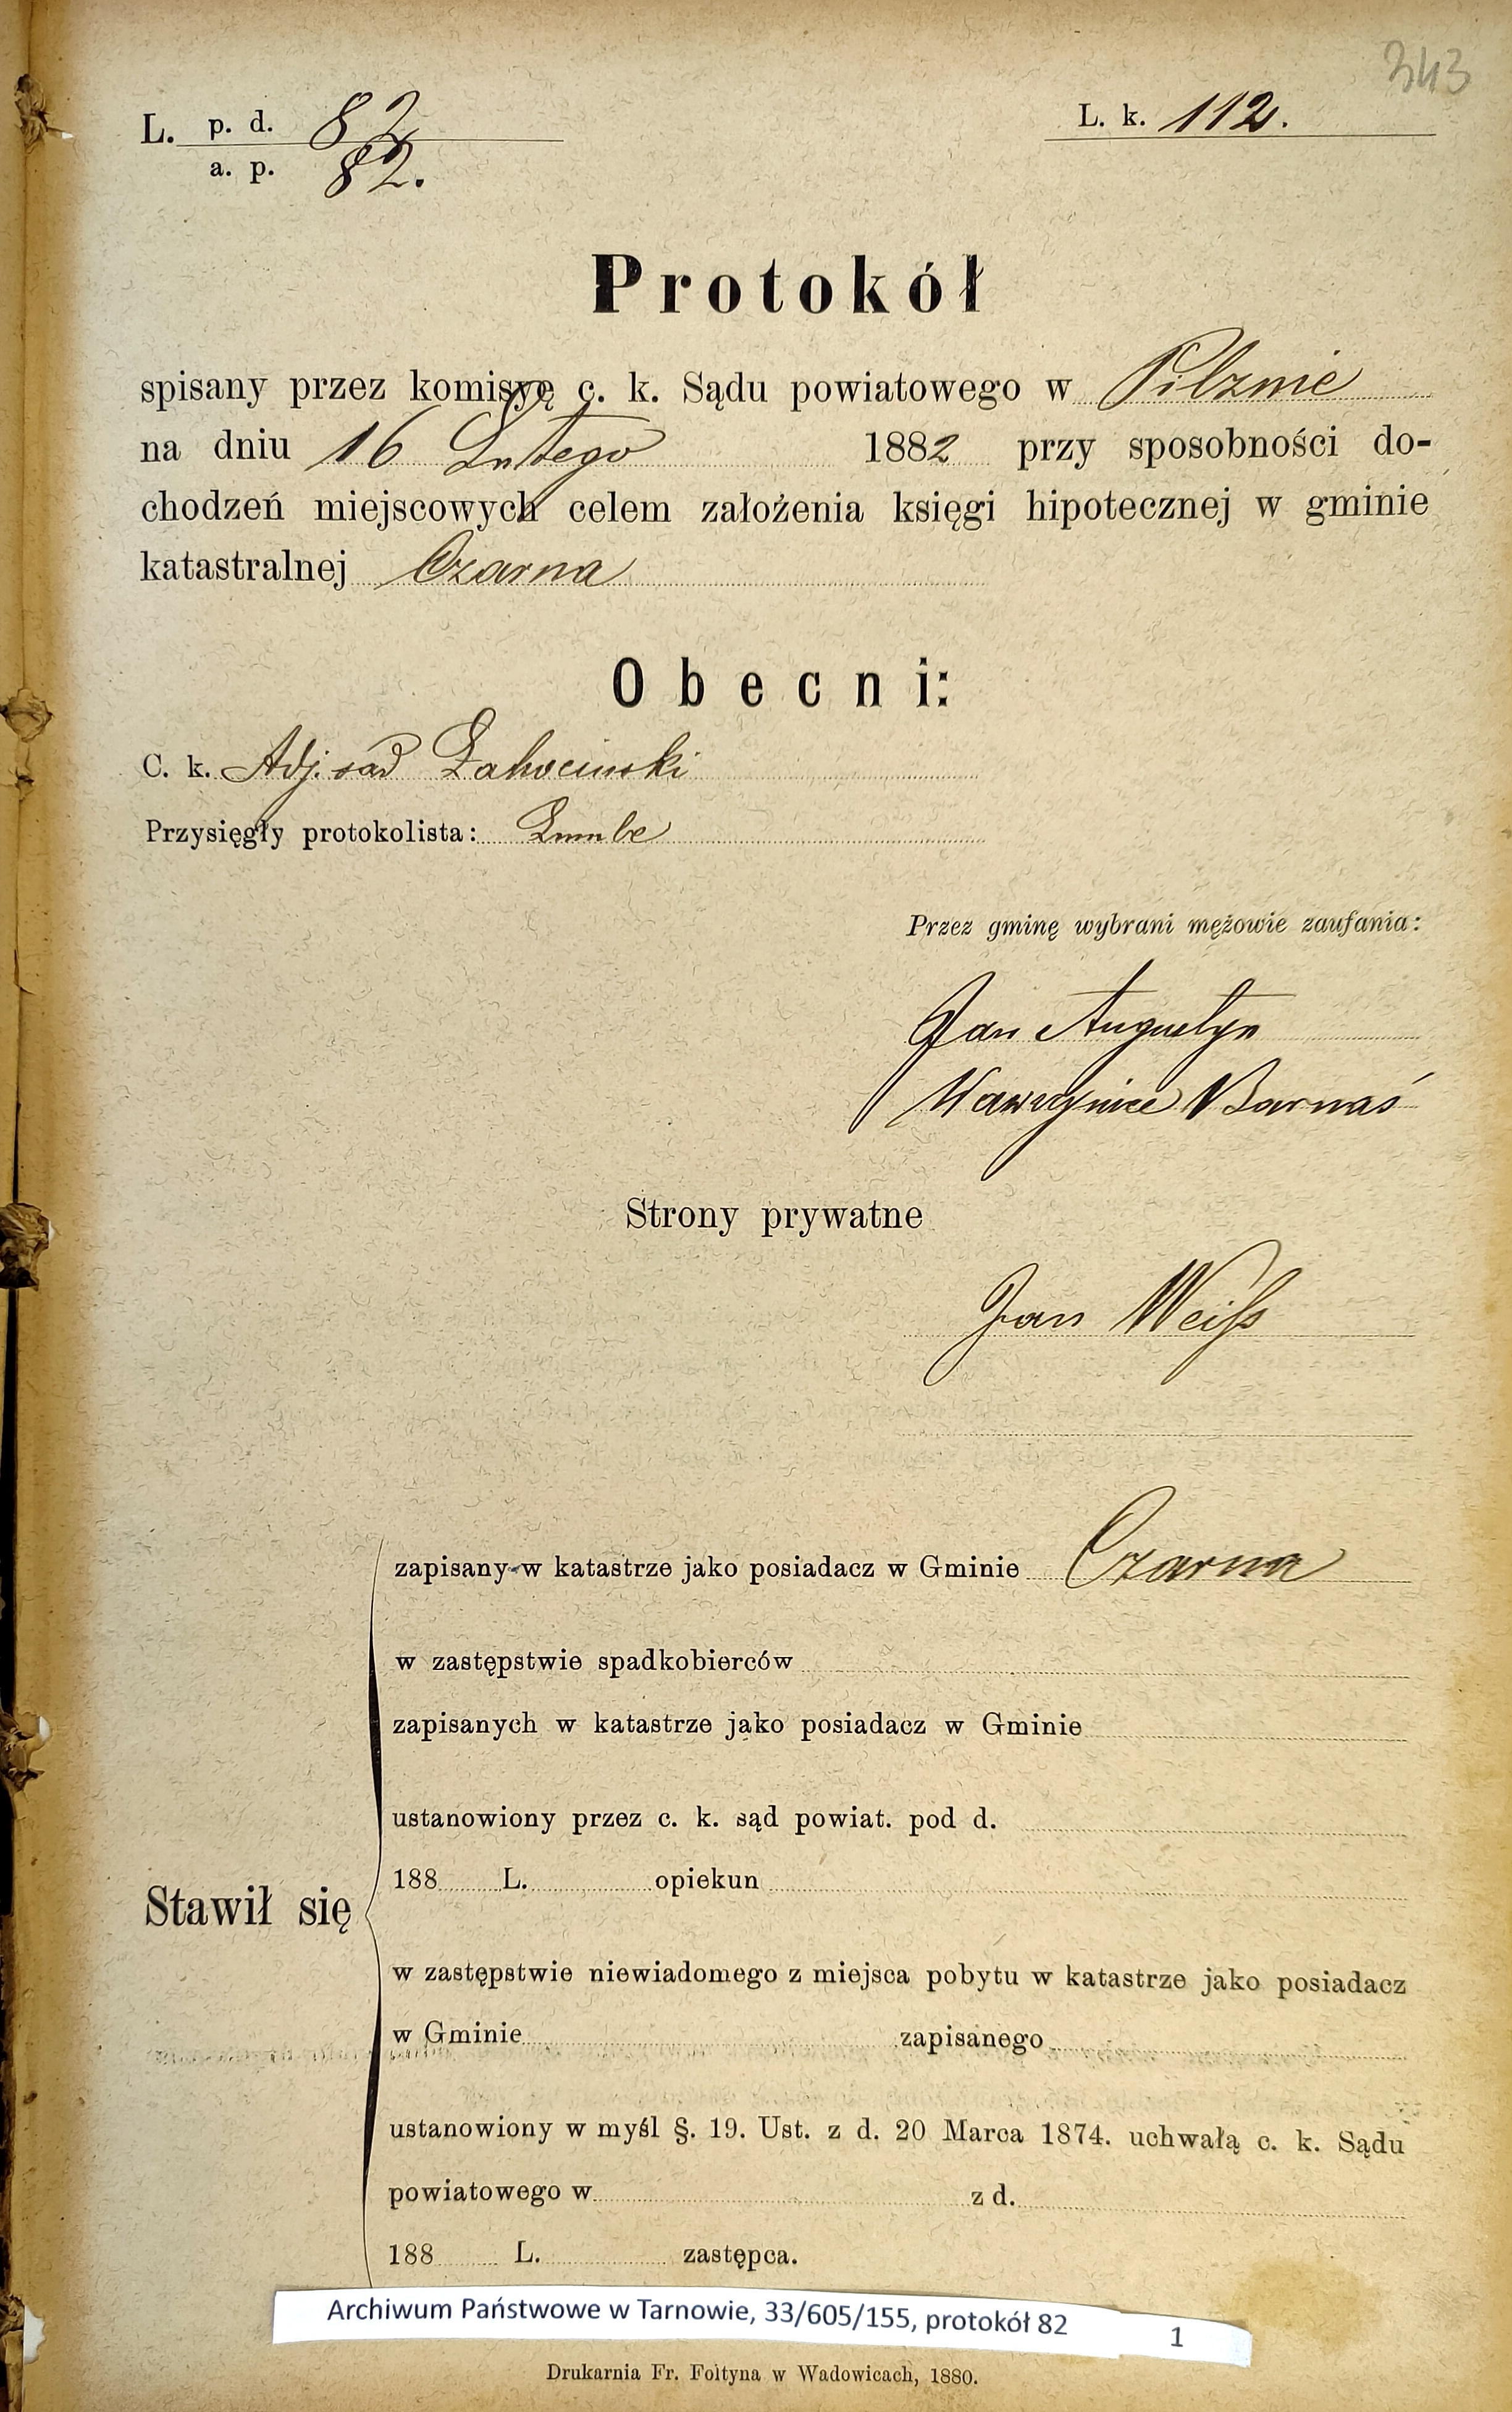 343
L. p. d. 82
a. p. 82.
L. k. 112.
Protokół
spisany przez komisyę c. k. Sądu powiatowego w Pilznie
na dniu 16 Lutego 1882 przy sposobności do-
chodzeń miejscowych celem założenia księgi hipotecznej w gminie
katastralnej Czarna
Obecni:
C. k. Adj. sąd
Przysięgły protokolista:
Przez gminę wybrani mężowie zaufania:
Jan Augustyn
Wawrzyniec Barnaś
Strony prywatne
Jan Weiſs
zapisany w katastrze jako posiadacz w Gminie Czarna
w zastępstwie spadkobierców
zapisanych w katastrze jako posiadacz w Gminie
ustanowiony przez c. k. sąd powiat. pod d.
188 L. opiekun
Stawił się
w zastępstwie niewiadomego z miejsca pobytu w katastrze jako posiadacz
w Gminie zapisanego
ustanowiony w myśl §. 19. Ust. z d. 20 Marca 1874. uchwałą c. k. Sądu
powiatowego w z d.
188 L. zastępca.
Archiwum Państwowe w Tarnowie, 33/605/155, protokół 82 1
Drukarnia Fr. Foltyna w Wadowicach, 1880.